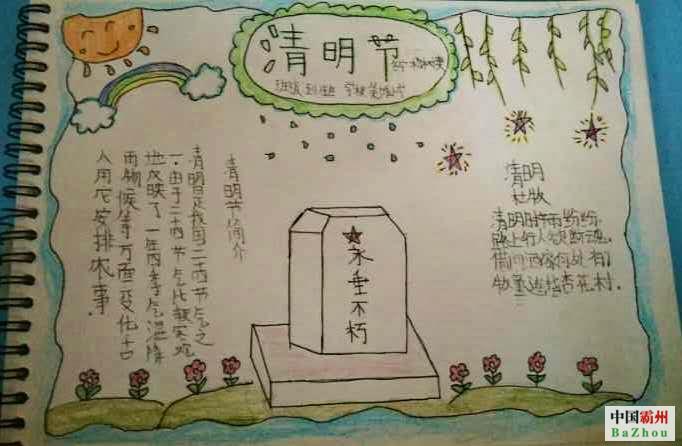 清明节
清明节简介
清明是我国二十四节气之
一.由于二十四节气比较客观
地反映了一年四季气温降
雨物候等方面变化古
人用它安排农事.
★永垂不朽
清明
杜牧
清明时节雨纷纷,
路上行人欲断魂.
借问酒家何处有?
牧童遥指杏花村.
中国霸州
BaZhou